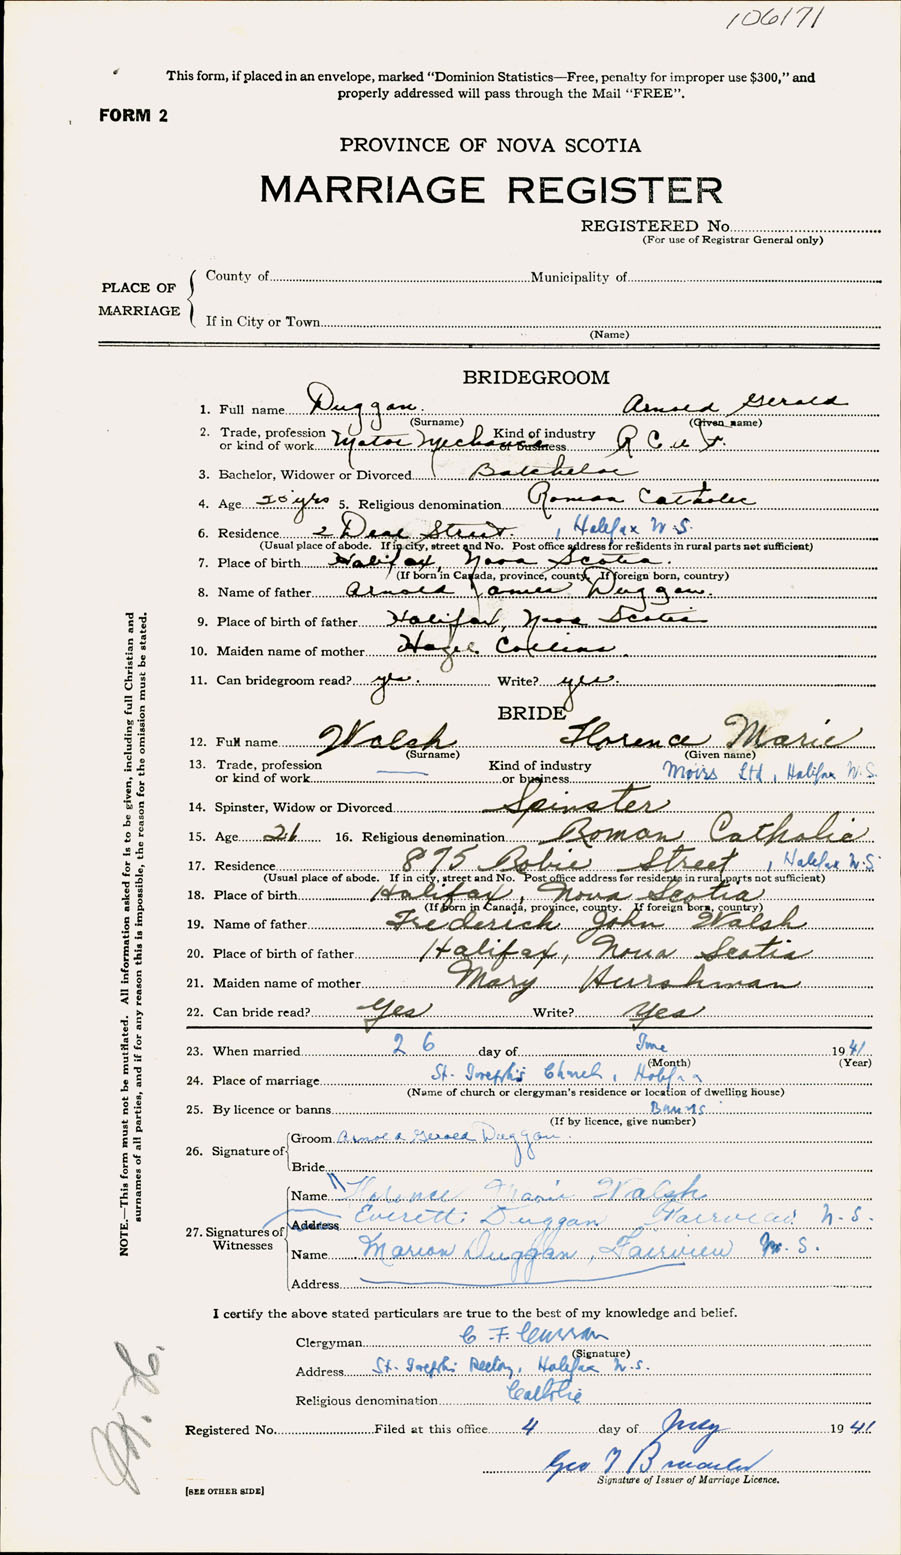 106171
This form, if placed in an envelope, marked “Dominion Statistics—Free, penalty for improper use $300,” and
properly addressed will pass through the Mail “FREE”.
FORM 2
PROVINCE OF NOVA SCOTIA
MARRIAGE REGISTER
REGISTERED No.
(For use of Registrar General only)
PLACE OF MARRIAGE
County of Municipality of
If in City or Town
(Name)
BRIDEGROOM
1. Full name Duggan. Arnold Gerald
(Surname) (Given name)
2. Trade, profession or kind of work Motor Mechanic Kind of industry or business R C A F.
3. Bachelor, Widower or Divorced Batchelor
4. Age yrs 5. Religious denomination Roman Catholic
6. Residence 2 Deal Street. , Halifax N.S.
(Usual place of abode. If in city, street and No. Post office address for residents in rural parts not sufficient)
7. Place of birth Halifax, Nova Scotia.
(If born in Canada, province, county. If foreign born, country)
8. Name of father Arnold James Duggan.
9. Place of birth of father Halifax, Nova Scotia
10. Maiden name of mother Hazel Collins.
11. Can bridegroom read? yes. Write? yes.
BRIDE
12. Full name Walsh Florence Marie
(Surname) (Given name)
13. Trade, profession or kind of work — Kind of industry or business Moirs Ltd, Halifax N.S.
14. Spinster, Widow or Divorced Spinster
15. Age 21 16. Religious denomination Roman Catholic
17. Residence 875 Robie Street , Halifax N.S.
(Usual place of abode. If in city, street and No. Post office address for residents in rural parts not sufficient)
18. Place of birth Halifax, Nova Scotia
(If born in Canada, province, county. If foreign born, country)
19. Name of father Frederick John Walsh
20. Place of birth of father Halifax, Nova Scotia
21. Maiden name of mother Mary Hurshman
22. Can bride read? Yes Write? Yes
23. When married 26 day of June 1941
(Month) (Year)
24. Place of marriage St. Joseph's Church, Halifax
(Name of church or clergyman's residence or location of dwelling house)
25. By licence or banns Banns
(If by licence, give number)
26. Signature of
Groom Arnold Gerald Duggan.
Bride
27. Signatures of Witnesses
Name Florence Marie Walsh
Address Everett Duggan Fairview N.S.
Name Marion Duggan, Fairview N.S.
Address
I certify the above stated particulars are true to the best of my knowledge and belief.
Clergyman C. F. Curran
(Signature)
Address St. Joseph's Rectory, Halifax N.S.
Religious denomination Catholic
Registered No. Filed at this office 4 day of July 1941
Geo
Signature of Issuer of Marriage Licence.
[SEE OTHER SIDE]
NOTE.—This form must not be mutilated. All information asked for is to be given, including full Christian and
surnames of all parties, and if for any reason this is impossible, the reason for the omission must be stated.